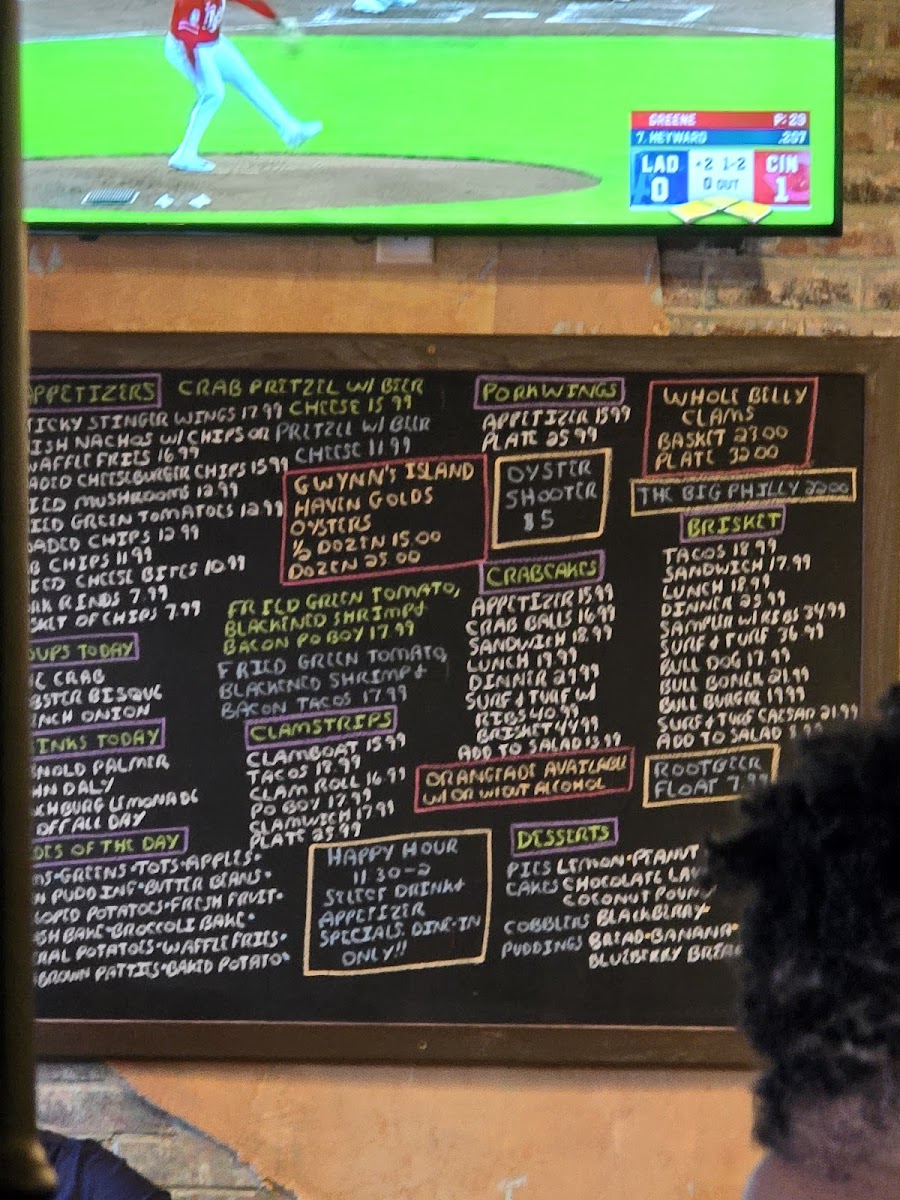 GREENE P: 29
7. HEYWARD .207
LAD 2 1-2 CIN
0 0 OUT 1
APPETIZERS CRAB PRETZEL W/ BEER
CHEESE 15 99
STINGER WINGS 17 99
NACHOS W/ CHIPS OR PRETZEL W/ BEER
WAFFLE FRIES 16 99 CHEESE 11 99
CHEESEBURGER CHIPS 15 99
MUSHROOMS 12 99
GREEN TOMATOES 12 99
CHIPS 12 99
CHIPS 11 99
CHEESE BITES 10 99
RINDS 7.99
OF CHIPS 7.99
GWYNN'S ISLAND
HAVEN GOLDS
OYSTERS
½ DOZEN 15.00
DOZEN 25.00
FRIED GREEN TOMATO,
BLACKENED SHRIMP +
BACON PO BOY 17 99
FRIED GREEN TOMATO,
BLACKENED SHRIMP +
BACON TACOS 17 99
TODAY
CRAB
BISQUE
ONION
TODAY
PALMER
DALY
LEMONADE
OFF ALL DAY
OF THE DAY
GREENS • TOTS • APPLES •
PUDDING • BUTTER BEANS •
POTATOES • FRESH FRUIT •
BAKE • BROCCOLI BAKE •
POTATOES • WAFFLE FRIES •
BROWN PATTIES • BAKED POTATO •
CLAMSTRIPS
CLAMBOAT 15 99
TACOS 18 99
CLAM ROLL 16 99
PO BOY 17 99
CLAMWICH 17 99
PLATE 25 99
HAPPY HOUR
11 30-2
SELECT DRINK +
APPETIZER
SPECIALS. DINE-IN
ONLY!!
PORKWINGS
APPETIZER 15 99
PLATE 25 99
OYSTER
SHOOTER
$5
CRABCAKES
APPETIZER 15 99
CRAB BALLS 16 99
SANDWICH 18 99
LUNCH 19 99
DINNER 29 99
SURF & TURF W/
RIBS 40 99
BRISKET 44 99
ADD TO SALAD 13 99
ORANGEADE AVAILABLE
W/ OR W/OUT ALCOHOL
WHOLE BELLY
CLAMS
BASKET 23.00
PLATE 32.00
THE BIG PHILLY 22.00
BRISKET
TACOS 18 99
SANDWICH 17.99
LUNCH 18 99
DINNER 23 99
SAMPLER W/ RIBS 34 99
SURF & TURF 36 99
BULL DOG 17 99
BULL BONER 21.99
BULL BURGER 19 99
SURF & TURF CAESAR 21 99
ADD TO SALAD
ROOTBEER
FLOAT 7.99
DESSERTS
PIES LEMON • PEANUT
CAKES CHOCOLATE
COCONUT
COBBLERS BLACKBERRY
PUDDINGS BREAD • BANANA
BLUEBERRY